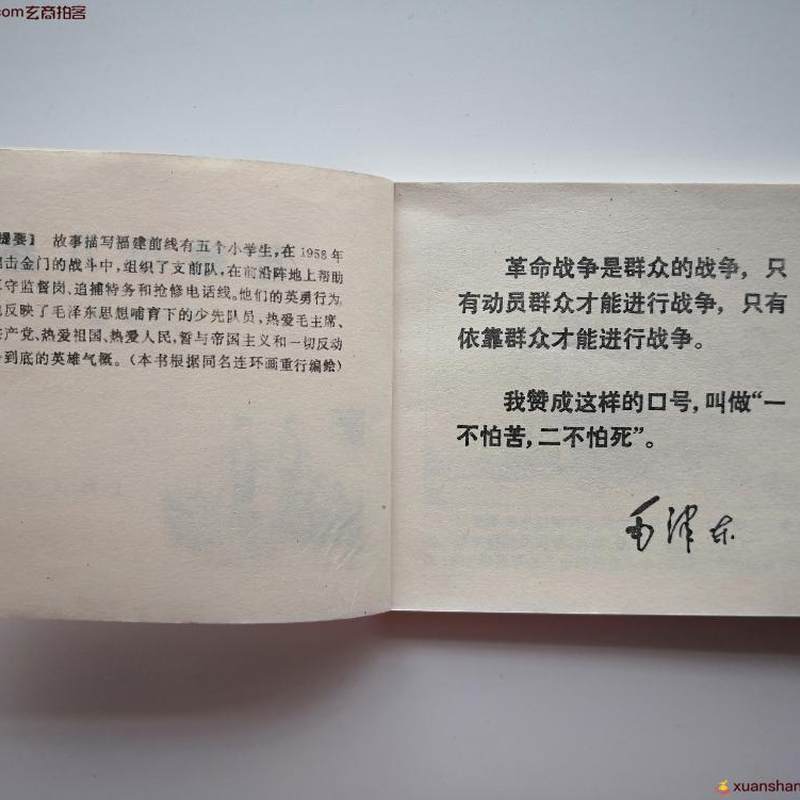 com玄商拍客
提要】 故事描写福建前线有五个小学生,在1958年
击金门的战斗中,组织了支前队,在前沿阵地上帮助
守监督岗、追捕特务和抢修电话线。他们的英勇行为,
反映了毛泽东思想哺育下的少先队员,热爱毛主席、
产党、热爱祖国、热爱人民,誓与帝国主义和一切反动
到底的英雄气慨。(本书根据同名连环画重行编绘)
革命战争是群众的战争,只
有动员群众才能进行战争,只有
依靠群众才能进行战争。
我赞成这样的口号,叫做“一
不怕苦,二不怕死”。
毛泽东
xuanshan